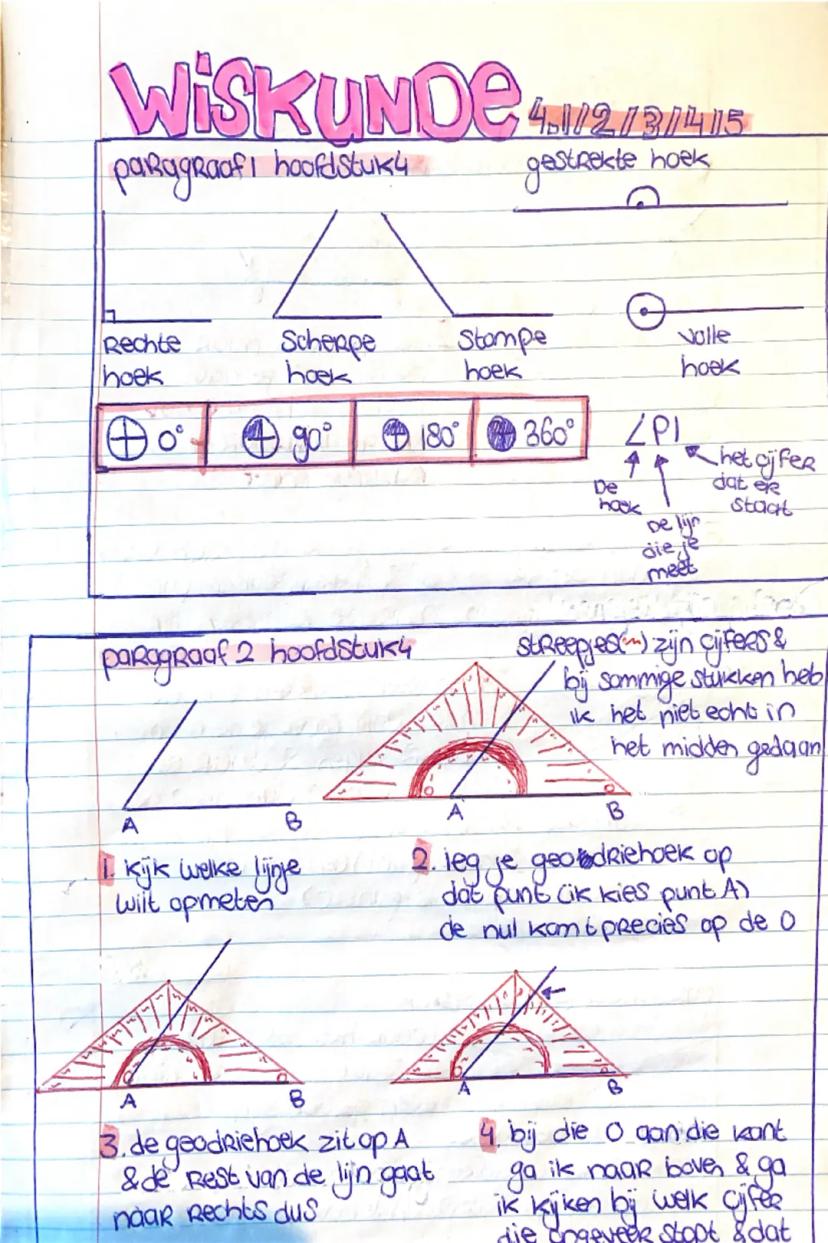 WISKUNDE 4.1/2/3/4/5
paragraaf 1 hoofdstuk 4
gestrekte hoek
Rechte
hoek
Scherpe
hoek
Stompe
hoek
Volle
hoek
0° 90° 180° 360°
∠P1
De
hoek
De lijn
die je
meet
het cijfer
dat er
staat
paragraaf 2 hoofdstuk 4
streepjes(~) zijn cijfers &
bij sommige stukken heb
ik het niet echt in
het midden gedaan
A B
A B
1. Kijk welke lijn je
wilt opmeten
2. leg je geodriehoek op
dat punt (ik kies punt A)
de nul komt precies op de 0
A B
A B
3. de geodriehoek zit op A
& de rest van de lijn gaat
naar rechts dus
4. bij die 0 aan die kant
ga ik naar boven & ga
ik kijken bij welk cijfer
die ongeveer stopt & dat